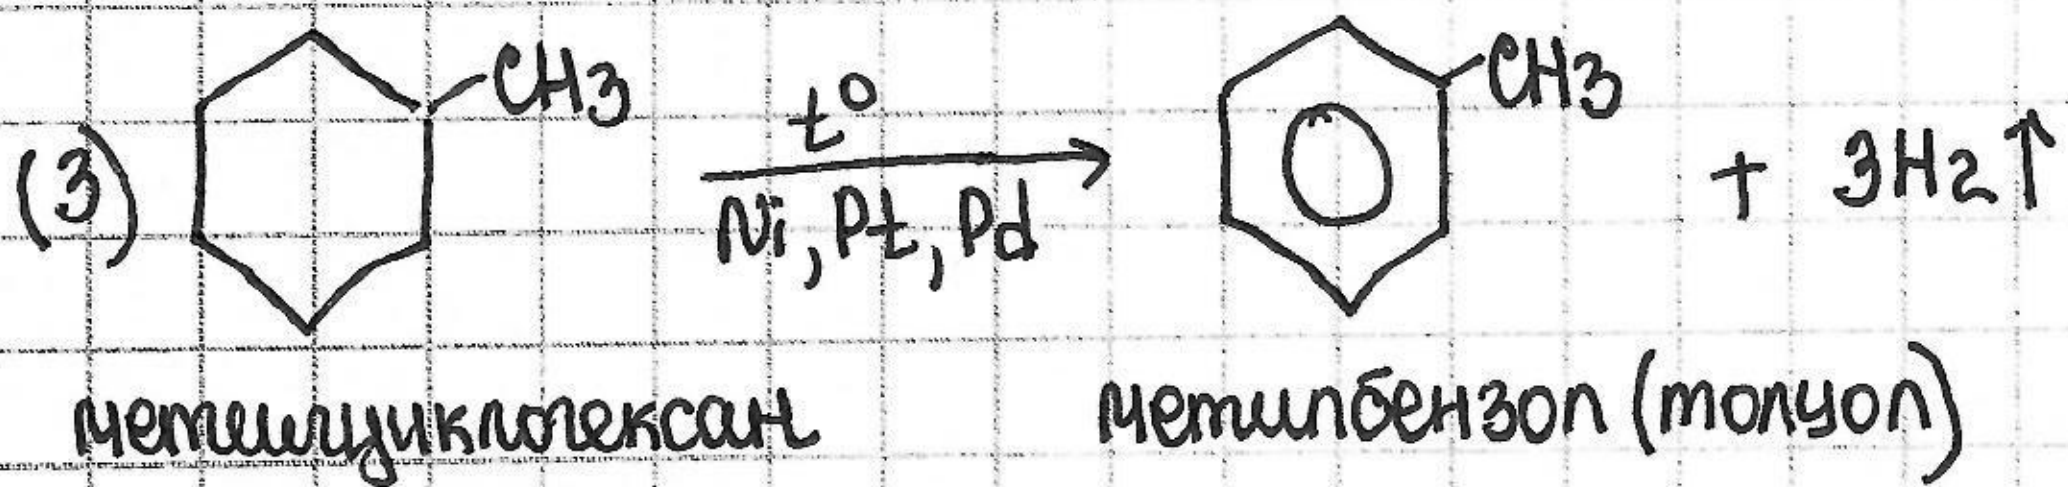 (3) CH3 t° Ni, Pt, Pd CH3 + 3H2↑
метилциклогексан метилбензол (толуол)